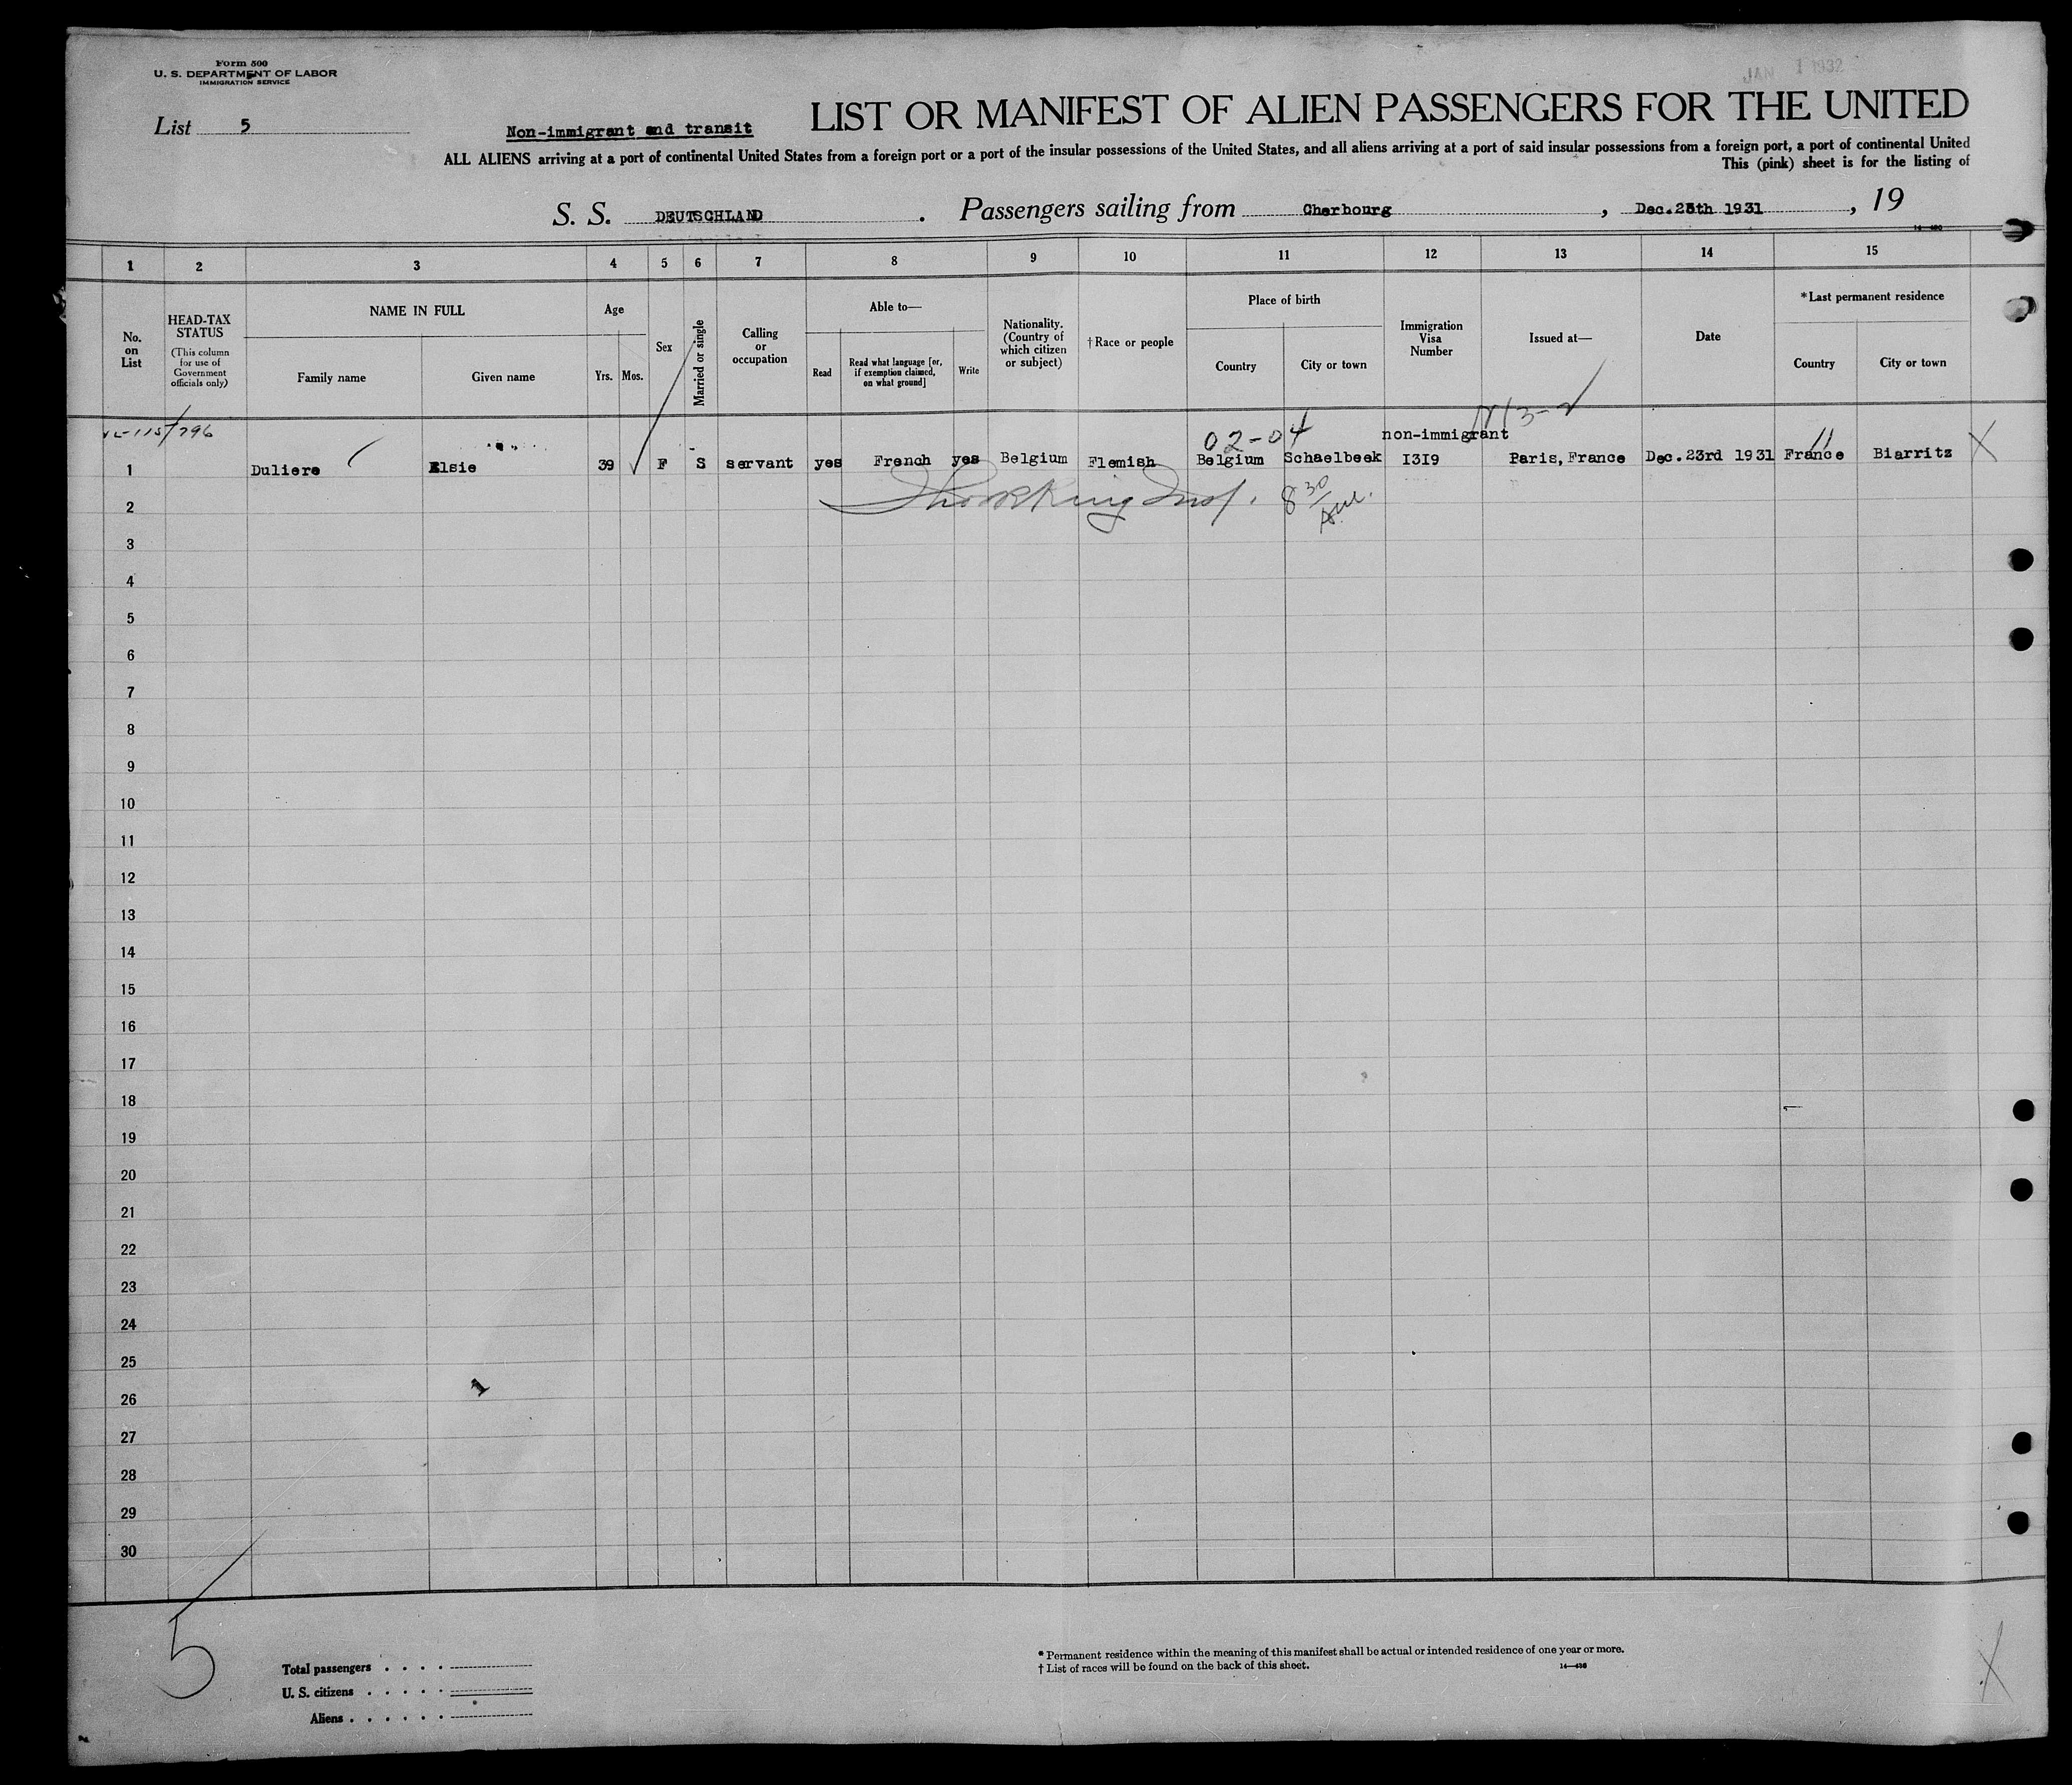 Form 500
U. S. DEPARTMENT OF LABOR
IMMIGRATION SERVICE
JAN 1 1932
List 5
Non-immigrant and transit
LIST OR MANIFEST OF ALIEN PASSENGERS FOR THE UNITED
ALL ALIENS arriving at a port of continental United States from a foreign port or a port of the insular possessions of the United States, and all aliens arriving at a port of said insular possessions from a foreign port, a port of continental United
This (pink) sheet is for the listing of
S. S. DEUTSCHLAND . Passengers sailing from Cherbourg , Dec. 1931 , 19
1 2 3 4 5 6 7 8 9 10 11 12 13 14 15
No. on List
HEAD-TAX STATUS (This column for use of Government officials only)
NAME IN FULL
Family name
Given name
Age
Yrs.
Mos.
Sex
Married or single
Calling or occupation
Able to—
Read
Read what language [or, if exemption claimed, on what ground]
Write
Nationality. (Country of which citizen or subject)
†Race or people
Place of birth
Country
City or town
Immigration Visa Number
Issued at—
Date
*Last permanent residence
Country
City or town
02-04
non-immigrant
1 Duliere Elsie 39 F S servant yes French yes Belgium Flemish Belgium Schaelbeek I3I9 Paris, France Dec. 23rd 1931 France Biarritz X
2
3
4
5
6
7
8
9
10
11
12
13
14
15
16
17
18
19
20
21
22
23
24
25
26
1
27
28
29
30
5
Total passengers . . . .
U. S. citizens . . . . .
Aliens . . . . . .
* Permanent residence within the meaning of this manifest shall be actual or intended residence of one year or more.
† List of races will be found on the back of this sheet.
X